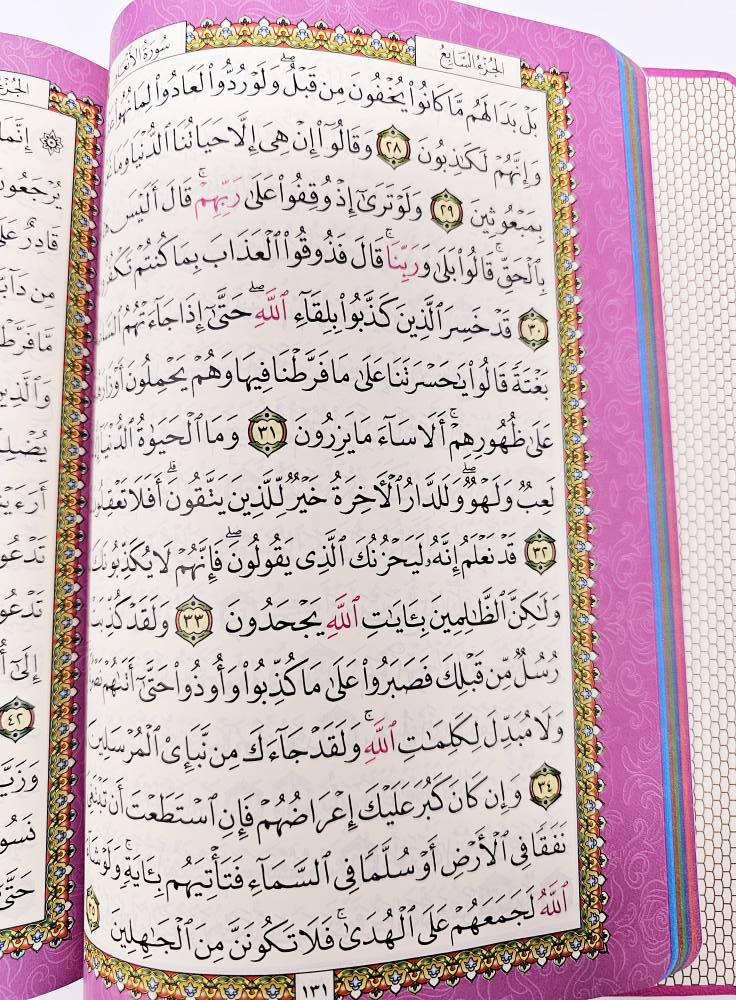 الجزء السابع
سورة الأنعام
بَلْ بَدَا لَهُم مَّا كَانُوا۟ يُخْفُونَ مِن قَبْلُ ۖ وَلَوْ رُدُّوا۟ لَعَادُوا۟ لِمَا نُهُوا۟
وَإِنَّهُمْ لَكَٰذِبُونَ ٢٨ وَقَالُوٓا۟ إِنْ هِىَ إِلَّا حَيَاتُنَا ٱلدُّنْيَا وَمَا
بِمَبْعُوثِينَ ٢٩ وَلَوْ تَرَىٰٓ إِذْ وُقِفُوا۟ عَلَىٰ رَبِّهِمْ ۚ قَالَ أَلَيْسَ
بِٱلْحَقِّ ۚ قَالُوا۟ بَلَىٰ وَرَبِّنَا ۚ قَالَ فَذُوقُوا۟ ٱلْعَذَابَ بِمَا كُنتُمْ
٣٠ قَدْ خَسِرَ ٱلَّذِينَ كَذَّبُوا۟ بِلِقَآءِ ٱللَّهِ ۖ حَتَّىٰٓ إِذَا جَآءَتْهُمُ
بَغْتَةً قَالُوا۟ يَٰحَسْرَتَنَا عَلَىٰ مَا فَرَّطْنَا فِيهَا وَهُمْ يَحْمِلُونَ
عَلَىٰ ظُهُورِهِمْ ۚ أَلَا سَآءَ مَا يَزِرُونَ ٣١ وَمَا ٱلْحَيَوٰةُ ٱلدُّنْيَآ
لَعِبٌ وَلَهْوٌ ۖ وَلَلدَّارُ ٱلْءَاخِرَةُ خَيْرٌ لِّلَّذِينَ يَتَّقُونَ ۗ أَفَلَا تَعْقِلُونَ
٣٢ قَدْ نَعْلَمُ إِنَّهُۥ لَيَحْزُنُكَ ٱلَّذِى يَقُولُونَ ۖ فَإِنَّهُمْ لَا يُكَذِّبُونَكَ
وَلَٰكِنَّ ٱلظَّٰلِمِينَ بِـَٔايَٰتِ ٱللَّهِ يَجْحَدُونَ ٣٣ وَلَقَدْ كُذِّبَتْ
رُسُلٌ مِّن قَبْلِكَ فَصَبَرُوا۟ عَلَىٰ مَا كُذِّبُوا۟ وَأُوذُوا۟ حَتَّىٰٓ أَتَىٰهُمْ
وَلَا مُبَدِّلَ لِكَلِمَٰتِ ٱللَّهِ ۚ وَلَقَدْ جَآءَكَ مِن نَّبَإِى۟ ٱلْمُرْسَلِينَ
٣٤ وَإِن كَانَ كَبُرَ عَلَيْكَ إِعْرَاضُهُمْ فَإِنِ ٱسْتَطَعْتَ أَن تَبْتَغِىَ
نَفَقًا فِى ٱلْأَرْضِ أَوْ سُلَّمًا فِى ٱلسَّمَآءِ فَتَأْتِيَهُم بِـَٔايَةٍ ۚ وَلَوْ شَآءَ
ٱللَّهُ لَجَمَعَهُمْ عَلَى ٱلْهُدَىٰ ۚ فَلَا تَكُونَنَّ مِنَ ٱلْجَٰهِلِينَ ٣٥
١٣١
إِنَّمَا
قَادِرٌ
مِن دَآبَّةٍ
مَّا فَرَّطْنَا
وَٱلَّذِينَ
إِلَىٰٓ
٤٢